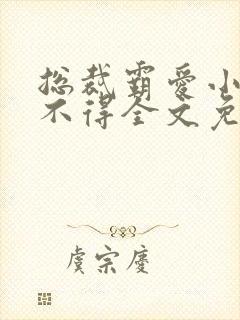 总裁霸爱小
不得全文免
虞宗庆